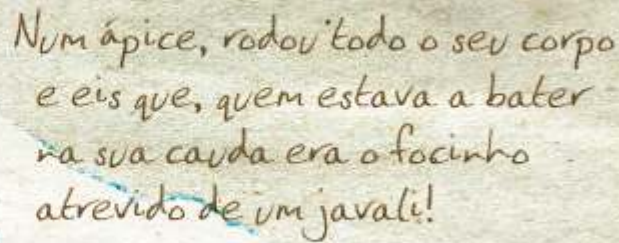 Num ápice, rodou todo o seu corpo
e eis que, quem estava a bater
na sua cauda era o focinho
atrevido de um javali!